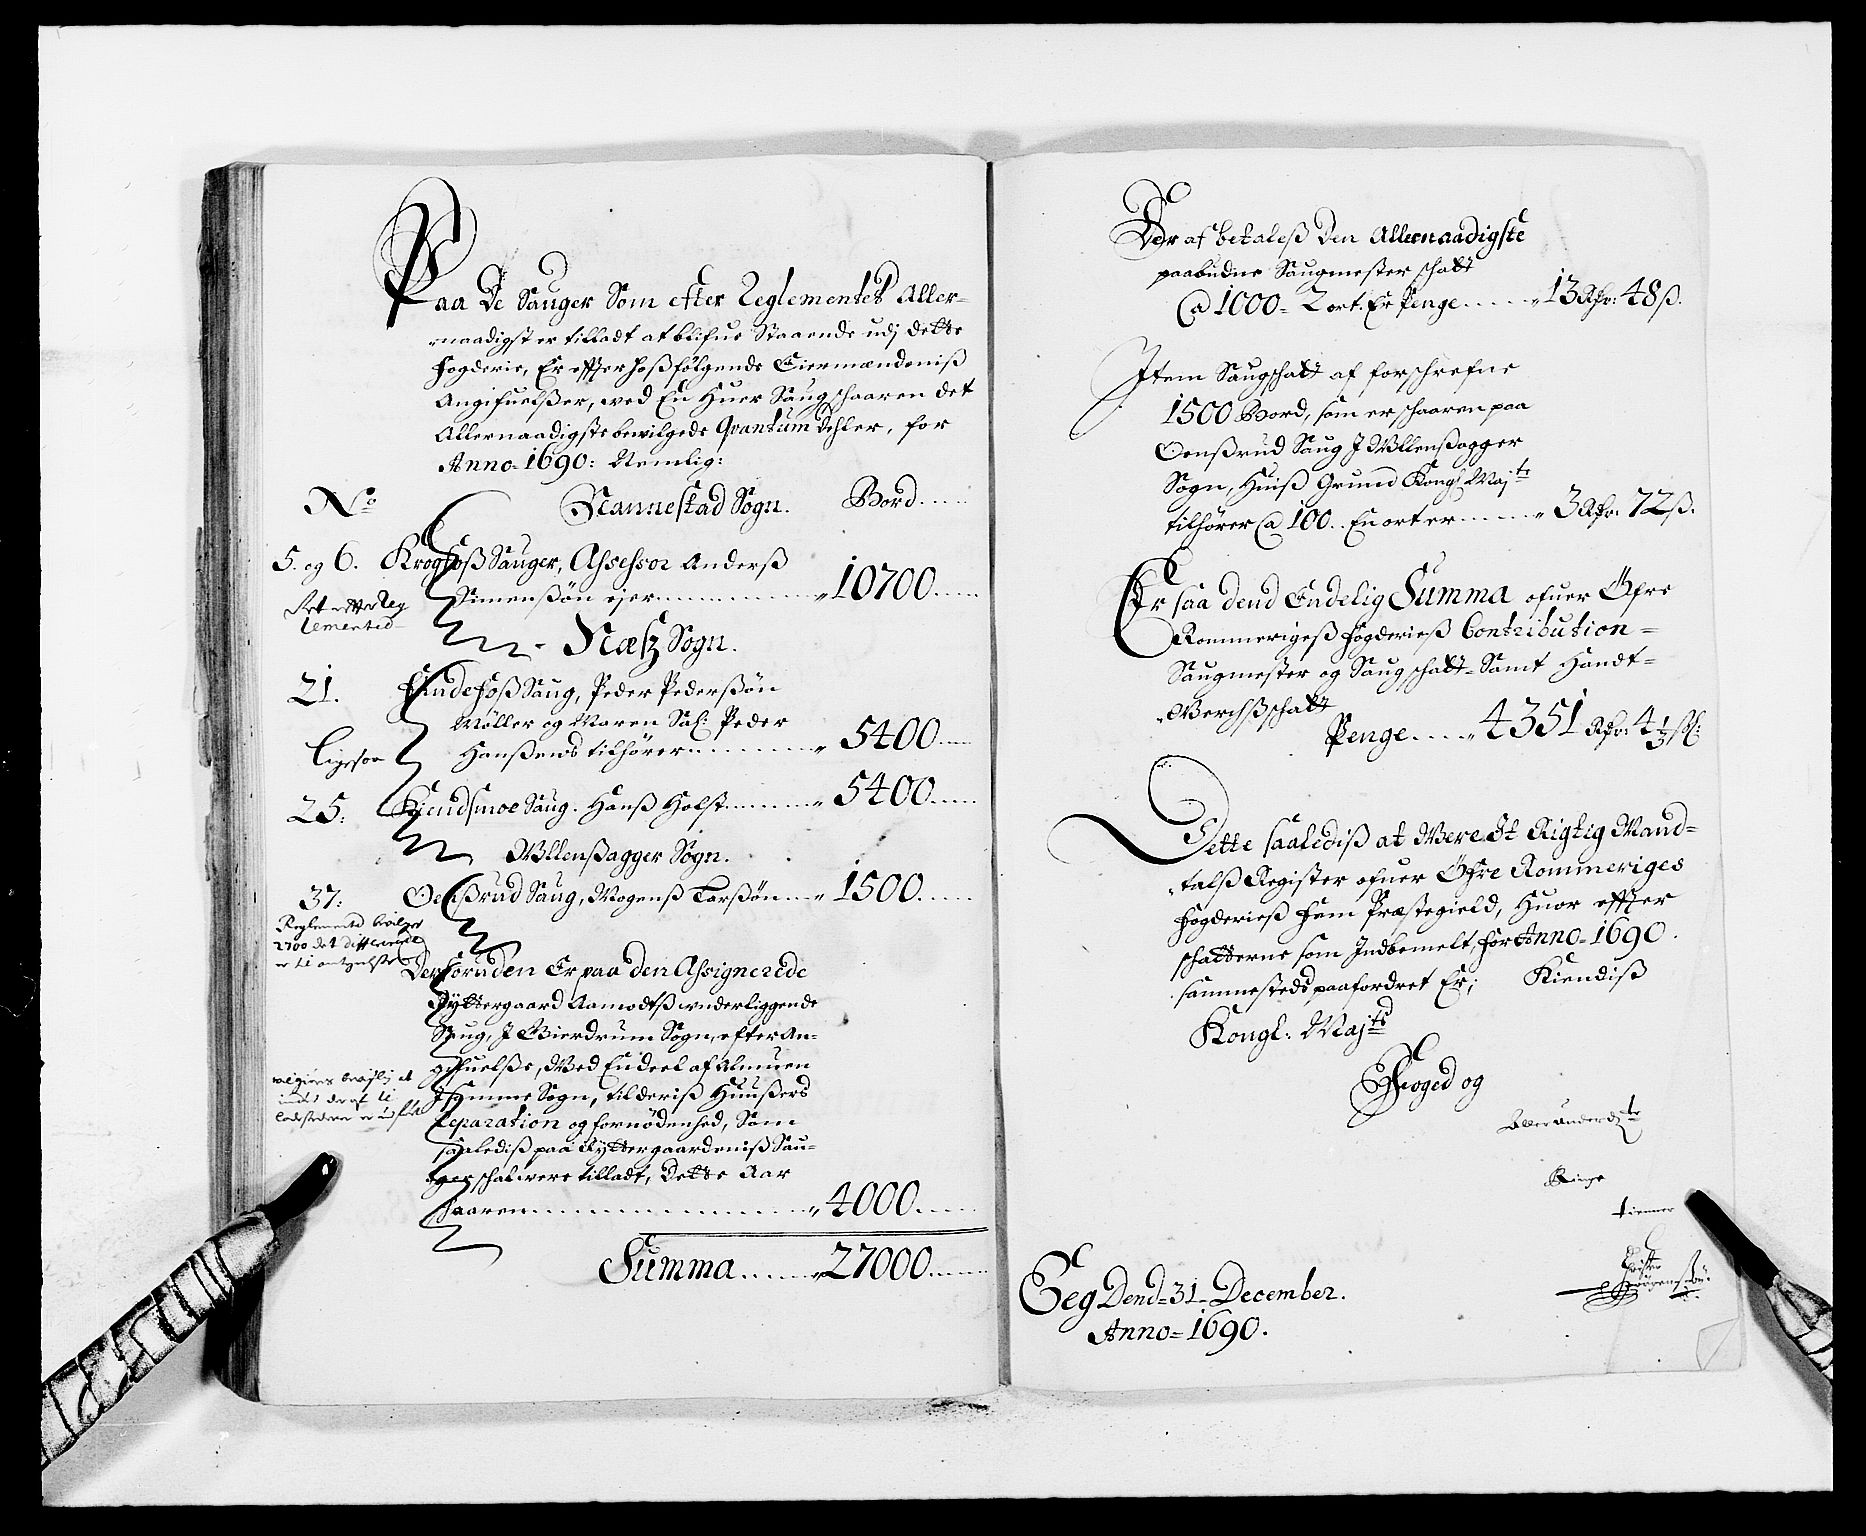 Paa De Sauger Som efter Reglementet Aller-
naadigst er tilladt at blifue Staaende udj dette
fogderie, Er effter hoßfølgende Eiermændeniß
Angifuelßer, ved En Huer Saug schaaren det
Allernaadigste bewilgede Qvantum Dehler, for
Anno-1690: Nemlig:
No Nannestad Sogn. Bord.....
5. og 6. Krogfoß Sauger, Assessor Anderß
Simenßøn ejer............ 10700.....
Ret effter Reg
lemented
Næsz Sogn.
21. Fundefoß Saug, Peder Pederßøn
Møller og Maren Sal: Peder
Hanßens tilhører......... 5400.....
ligesaa
25. Kiendsmoe Saug. Hanß Holst......... 5400.....
Wllenßagger Sogn.
37: Oenßrud Saug, Mogenß Larßøn... 1500.....
Reglemented
2700 det
er
Der foruden Er paa den Assignerede
Ryttergaard Aamodtß underliggende
Saug, J Gierdrum Sogn, efter An-
gifuelße, Med En deel af Almuen
J samme Sogn, til deriß Huußers
Reparation og fornødenhed, Som
saalediß paa Ryttergaardeniß Sau-
ger schal were tilladt, Dette Aar
schaaren................ 4000.....
Summa....... 27000.....
Der af betaleß Den Allernaadigste
paabudne Saugmester schatt
@ 1000 = 2 ort. Er Penge..... 13 Rdr: 48 ß.
Jtem Saugschatt af forschrefne
1500 Bord, som er schaaren paa
Oenßrud Saug J Wllenßagger
Sogn, Huiß Grund Kongl Maj:ts
tilhører @ 100.. En ort er....... 3 Rdr: 72 ß.
Er saa dend Endelig Summa ofuer Øfre
Rommerigeß fogderieß Contribution =
Saugmester og Saugschatt = Samt Handt =
Verchßschatt
Penge..... 4351 Rdr: 4 1/3 ß:
Dette saalediß at Were Et Rigtig Mand =
talß Register ofuer Øfre Rommeriges
fogderieß fem Præstegield, Huor effter
schatterne som Jndbemelt, for Anno-1690.
sammesteds paafordret Er; Kiendiß
Kongl: Maj:ts
Foged og
Allerunderd:te
Ringe
tienner
Eeg Dend-31-December.
Anno-1690.